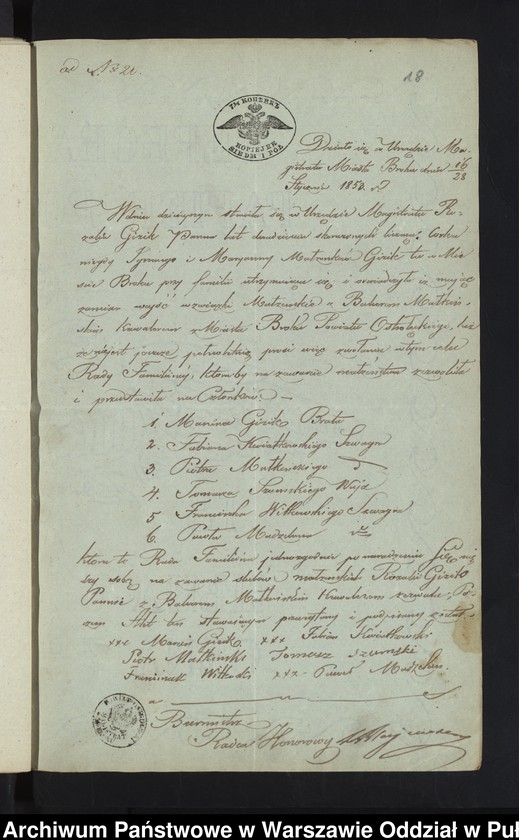 ad № 21.
18
7½ КОПѢЕКЪ
KOPIEJEK
SIEDM I PÓŁ
Działo się w Urzędzie Ma-
gistratu Miasta Broku dnia 16/28
Stycznia 1858 r.
W dniu dzisiejszym stawiła się w Urzędzie Magistratu Ro-
zalia Gizik Panna lat dwadzieścia skończonych licząca, córka
niegdy Ignacego i Maryanny Małżonków Gizik tu w Mie-
ście Broku przy familii utrzymująca się i oświadczyła iż mając
zamiar wejść w związki Małżeńskie z Balcerem Małkiń-
skim Kawalerem z Miasta Broku Powiatu Ostrołęckiego, lecz
że niejest jeszcze pełnoletnią, prosi więc zwołania w tym celu
Rady Familijnéj, któraby na zawarcie małżeństwa zezwoliła
i przedstawiła na Członków. —
1. Marcina Gizik Brata
2. Fabiana Kwiatkowskiego Szwagra
3. Piotra Małkińskiego
4. Tomasza Szumskiego Wuja
5 Franciszka Witkowskiego Szwagra
6. Pawła
która to Rada Familijna jednozgodnie po naradzeniu się
na zawarcie ślubów małżeńskich Rozalii Gizik
Pannie z Balcerem Małkińskim Kawalerem zezwala. Po-
czem Akt ten stawającym przeczytany i podpisany został.
xxx Marcin Gizik xxx Fabian Kwiatkowski
Piotr Małkiński Tomasz Szumski
Franciszek Witkoski xxx Paweł
Burmistrz
Radca Honorowy
Archiwum Państwowe w Warszawie Oddział w Puł